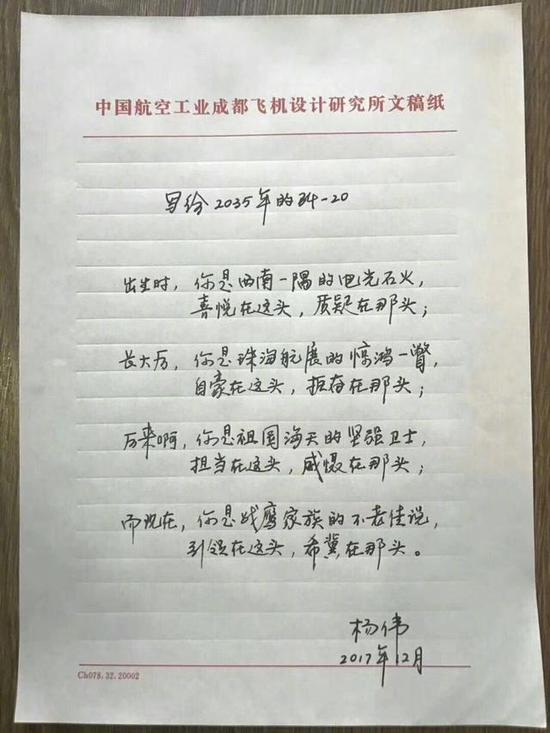 中国航空工业成都飞机设计研究所文稿纸
写给2035年的歼-20
出生时，你是西南一隅的电光石火，
喜悦在这头，质疑在那头；
长大后，你是珠海航展的惊鸿一瞥，
自豪在这头，在那头；
后来啊，你是祖国海天的坚强卫士，
担当在这头，威慑在那头；
而现在，你是战鹰家族的不老传说，
引领在这头，希冀在那头。
杨伟
2017年12月
Ch078.32.20002